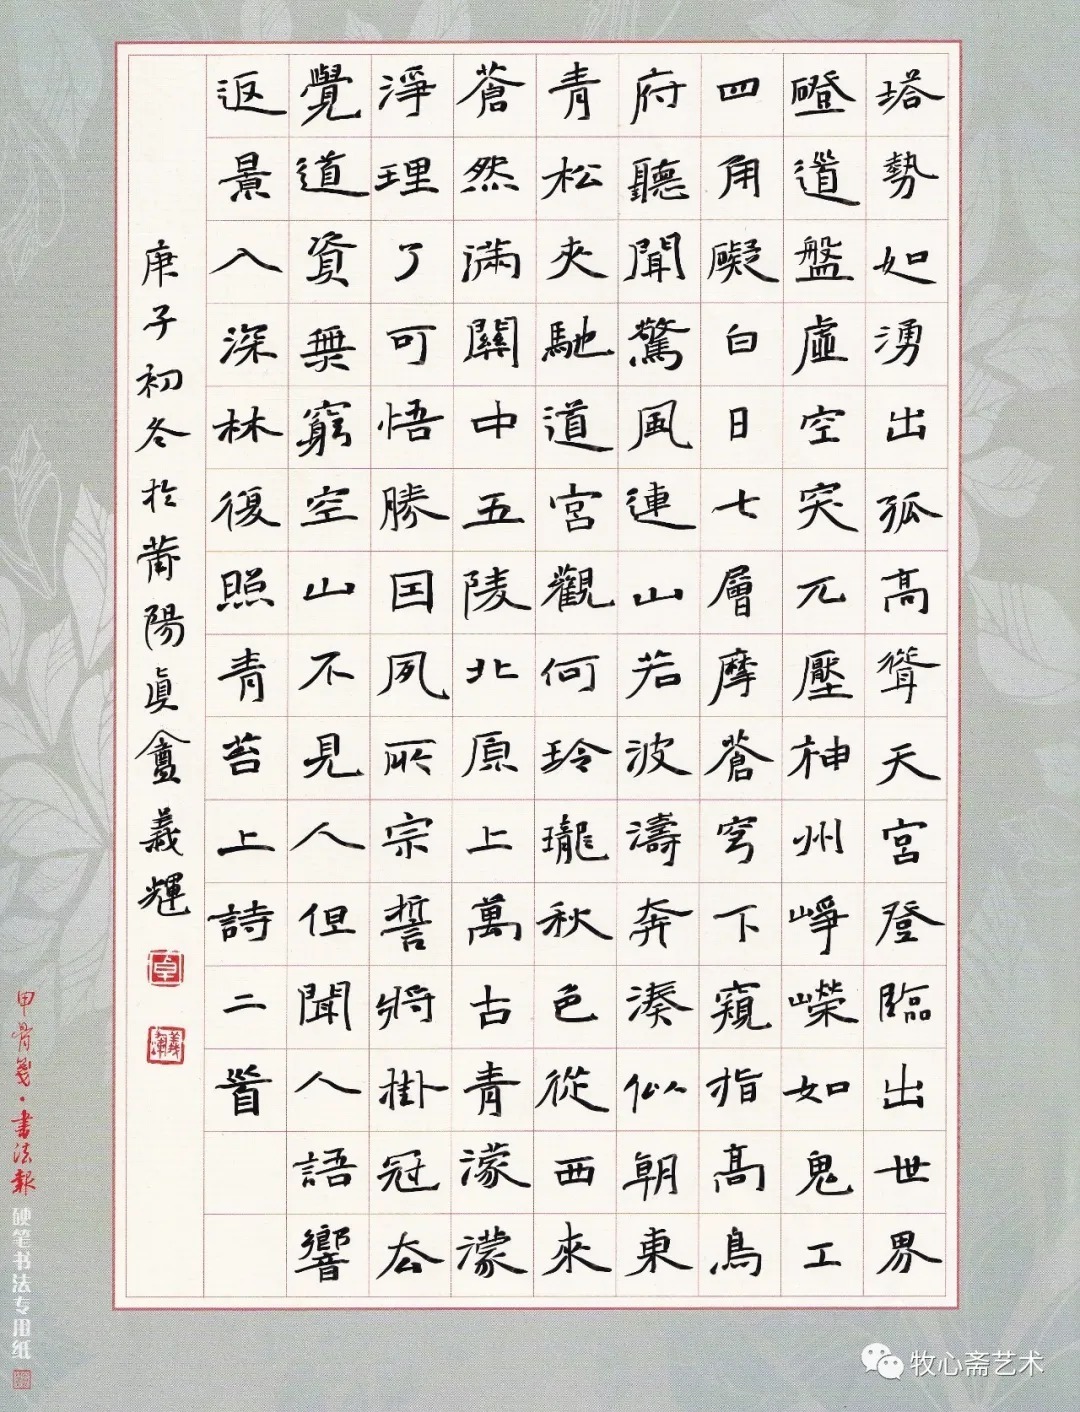 塔勢如湧出孤高聳天宮登臨出世界
磴道盤虛空突兀壓神州崢嶸如鬼工
四角礙白日七層摩蒼穹下窺指高鳥
府聽聞驚風連山若波濤奔湊似朝東
青松夾馳道宮觀何玲瓏秋色從西來
蒼然滿關中五陵北原上萬古青濛濛
淨理了可悟勝囙夙所宗誓將掛冠去
覺道資無窮空山不見人但聞人語響
返景入深林復照青苔上詩二首
庚子初冬於莆陽眞盦義輝
卓
甲骨箋·書法報
硬笔书法专用纸
牧心斋艺术